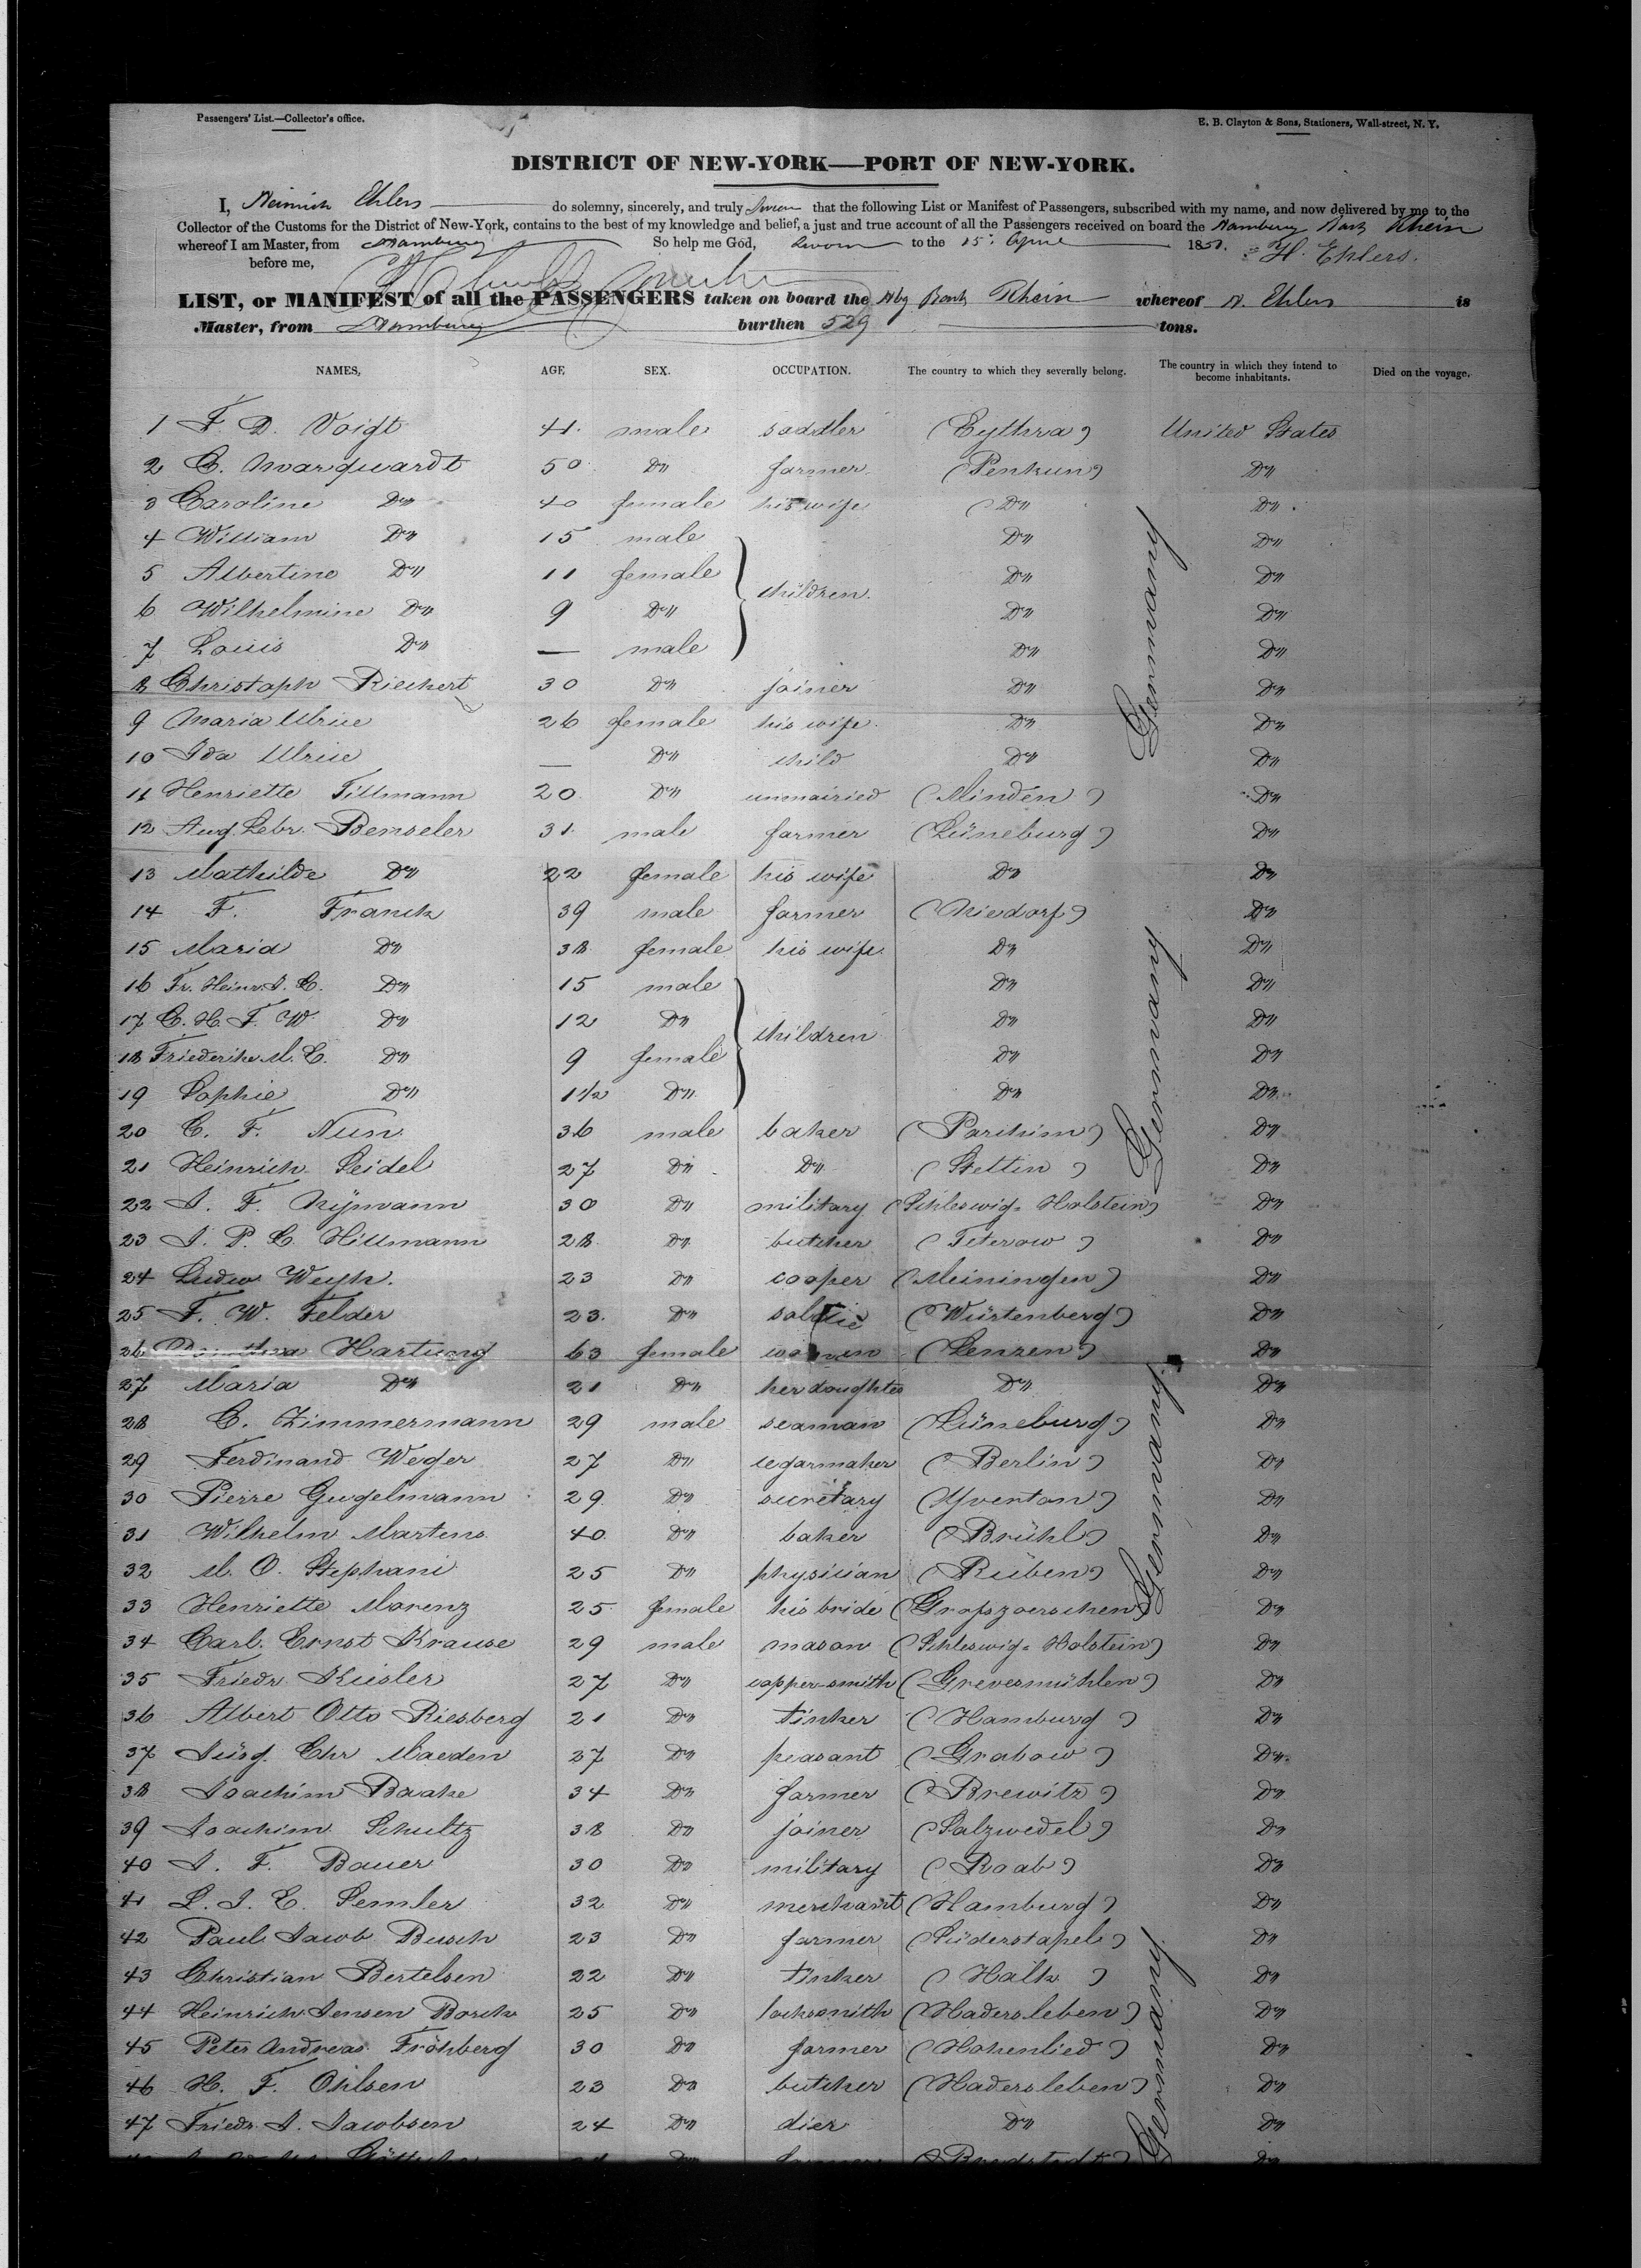 Passengers' List.—Collector's office.
E. B. Clayton & Sons, Stationers, Wall-street, N. Y.
DISTRICT OF NEW-YORK—PORT OF NEW-YORK.
I, Heinrich Ehlers do solemny, sincerely, and truly swear that the following List or Manifest of Passengers, subscribed with my name, and now delivered by me to the
Collector of the Customs for the District of New-York, contains to the best of my knowledge and belief, a just and true account of all the Passengers received on board the Hamburg Bark Rhein
whereof I am Master, from Hamburg So help me God, Sworn to the 15. April 1851. H. Ehlers.
before me,
LIST, or MANIFEST of all the PASSENGERS taken on board the Hbg Bark Rhein whereof H. Ehlers is
Master, from Hamburg burthen 529 tons.
NAMES, AGE SEX. OCCUPATION. The country to which they severally belong. The country in which they intend to become inhabitants. Died on the voyage.
1 F. D. Voigt 41. male saddler (Eythra) United States
2 C. Marquardt 50 Do farmer (Penkun) Do
3 Caroline Do 40 female his wife (Do Do
4 William Do 15 male Do Do
5 Albertine Do 11 female children. Do Do
6 Wilhelmine Do 9 Do Do Do
7 Louis Do — male Do Do
8 Christoph Riechert 30 Do joiner Do Do
9 Maria Ulrice 26 female his wife. Do Do
10 Ida Ulrice — Do child Do Do
11 Henriette Tillmann 20 Do unmairied (Minden) Do
12 Aug Lebr. Benseler 31. male farmer (Lüneburg) Do
13 Mathilde Do 22 female his wife Do Do
14 F. Franck 39 male farmer (Niedorf) Do
15 Maria Do 38 female his wife. Do Do
16 Fr. Heinr. J. C. Do 15 male Do Do
17 C. H. F. W. Do 12 Do children Do Do
18 Friederike M. C. Do 9 female Do Do
19 Sophie Do 1 1/2 Do Do Do
20 C. F. Nun 36 male baker (Parchim) Do
21 Heinrich Seidel 27 Do Do (Stettin) Do
22 J. F. Nijmann 30 Do military (Schleswig-Holstein) Do
23 J. P. C. Hillmann 28 Do butcher (Teterow) Do
24 Ludw. Weyh. 23 Do cooper (Meiningen) Do
25 F. W. Felder 23. Do (Würtenberg) Do
26 Dorothea Hartung 63 female women (Lenzen) Do
27 Maria Do 21 Do her doughter Do Do
28 C. Zimmermann 29 male seaman (Lüneburg) Do
29 Ferdinand Weger 27 Do cegarmaker (Berlin) Do
30 Pierre Gugelmann 29 Do secretary (Yverton) Do
31 Wilhelm Martens 40 Do baker (Brühl) Do
32 M. O. Stephani 25 Do physician (Rüben) Do
33 Henriette Morenz 25 female his bride (Grofszoerschen) Do
34 Carl Ernst Krause 29 male mason (Schleswig-Holstein) Do
35 Friedr. Kiesler 27 Do copper-smith (Grevesmühlen) Do
36 Albert Otto Riesberg 21 Do tinker (Hamburg) Do
37 Jürg. Chr Maeden 27 Do peasant (Grabow) Do
38 Joachim Baake 34 Do farmer (Brewitz) Do
39 Joachim Schultz 38 Do joiner (Salzwedel) Do
40 J. F. Bauer 30 Do military (Raab) Do
41 L. J. E. Semler 32 Do merchant (Hamburg) Do
42 Paul Jacob Busch 23 Do farmer (Süderstapel) Do
43 Christian Bertelsen 22 Do tinker (Halk) Do
44 Heinrich Jensen Borck 25 Do locksmith (Hadersleben) Do
45 Peter Andreas Fröhberg 30 Do farmer (Hohenlied) Do
46 H. F. Ohlsen 23 Do butcher (Hadersleben) Do
47 Friedr. J. Jacobsen 24 Do dier Do Do
(Bredstedt) Do
Germany
Germany
Germany
Germany
Germany